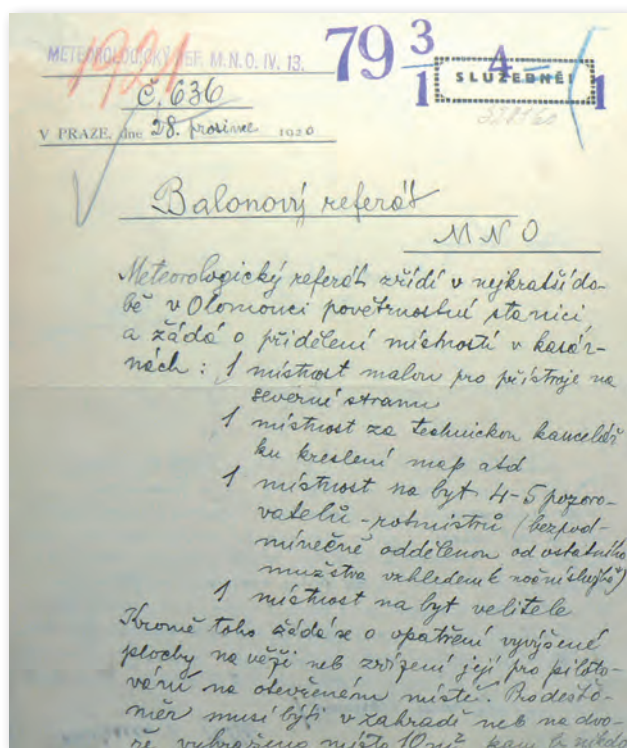 METEOROLOGICKÝ REF. M.N.O. IV. 13.
1921
79 3/1 4 1
SLUŽEBNĚ!
Č. 636
V PRAZE, dne 28. prosince 1920
Balonový referát
MNO
Meteorologický referát zřídí v nejkratší do-
bě v Olomouci povětrnostní stanici
a žádá o přidělení místností v kasár-
nách : 1 místnost malou pro přístroje na
severní stranu
1 místnost za technickou kancelář
ku kreslení map atd
1 místnost na byt 4-5 pozoro-
vatelů-rotmistrů (bezpod-
mínečně oddělenou od ostatního
mužstva vzhledem k noční službě)
1 místnost na byt velitele
Kromě toho žádá se o opatření vyvýšené
plochy na věži neb zřízení její pro piloto-
vání na otevřeném místě. Pro dešťo-
měr musí býti v zahradě neb na dvo-
ře vyhraženo místo 10 m²